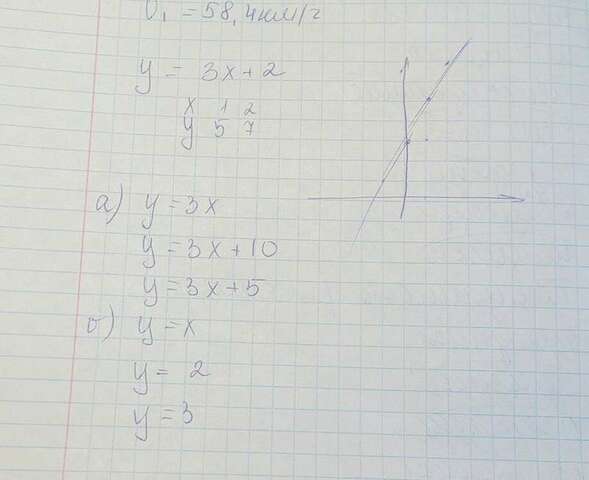 υ₁ = 58,4 км/ч
y = 3x + 2
x 1 2
y 5 7
а) y = 3x
y = 3x + 10
y = 3x + 5
б) y = x
y = 2
y = 3